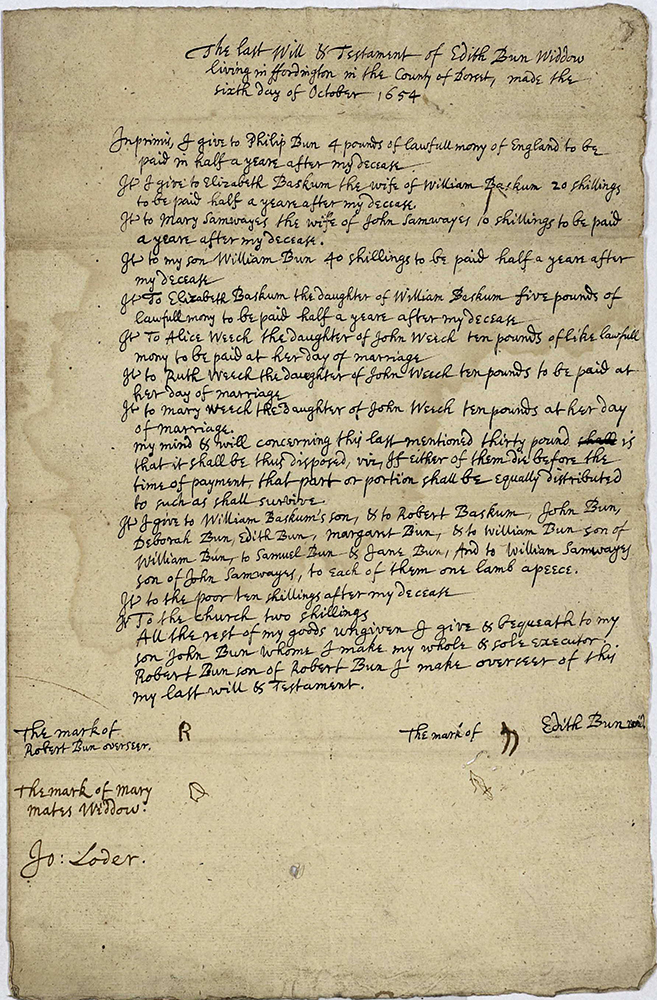 The last Will & Testament of Edith Bun Widdow
living in ffordington in the County of Dorset, made the
sixth day of October 1654
Inprimis, I give to Philip Bun 4 pounds of lawfull mony of England to be
paid in half a yeare after my decease
It I give to Elizabeth Baskum the wife of William Baskum 20 shillings
to be paid half a yeare after my decease
It to Mary Samwayes the wife of John Samwayes 10 shillings to be paid
a yeare after my decease.
It to my son William Bun 40 shillings to be paid half a yeare after
my decease
It To Elizabeth Baskum the daughter of William Baskum five pounds of
lawfull mony to be paid half a yeare after my decease
It To Alice Weech the daughter of John Weech ten pounds of like lawfull
mony to be paid at her day of marriage
It to Ruth Weech the daughter of John Weech ten pounds to be paid at
her day of marriage
It to Mary Weech the Daughter of John Weech ten pounds at her day
of marriage.
my mind & will concerning this last mentioned thirty pound shall is
that it shall be thus disposed, viz, If either of them die before the
time of payment, that part or portion shall be equally distributed
to such as shall survive
It I give to William Baskum's son, & to Robert Baskum, John Bun,
Deborah Bun, Edith Bun, Margaret Bun, & to William Bun son of
William Bun, to Samuel Bun & Jane Bun, And to William Samwayes
son of John Samwayes, to each of them one lamb apeece.
It to the poor ten shillings after my decease
It To the church two shillings
All the rest of my goods ungiven I give & bequeath to my
son John Bun whome I make my whole & sole executor.
Robert Bun son of Robert Bun I make overseer of this
my last will & Testament.
The mark of R The mark of Edith Bun
Robert Bun overseer.
The mark of Mary
Mates Widdow.
Jo: Loder.